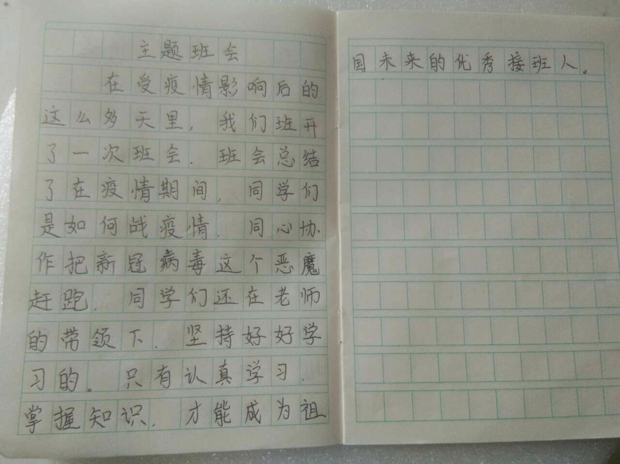 主题班会
在受疫情影响后的
这么多天里，我们班开
了一次班会．班会总结
了在疫情期间，同学们
是如何战疫情．同心协
作把新冠病毒这个恶魔
赶跑．同学们还在老师
的带领下．坚持好好学
习的。只有认真学习．
掌握知识．才能成为祖
国未来的优秀接班人。